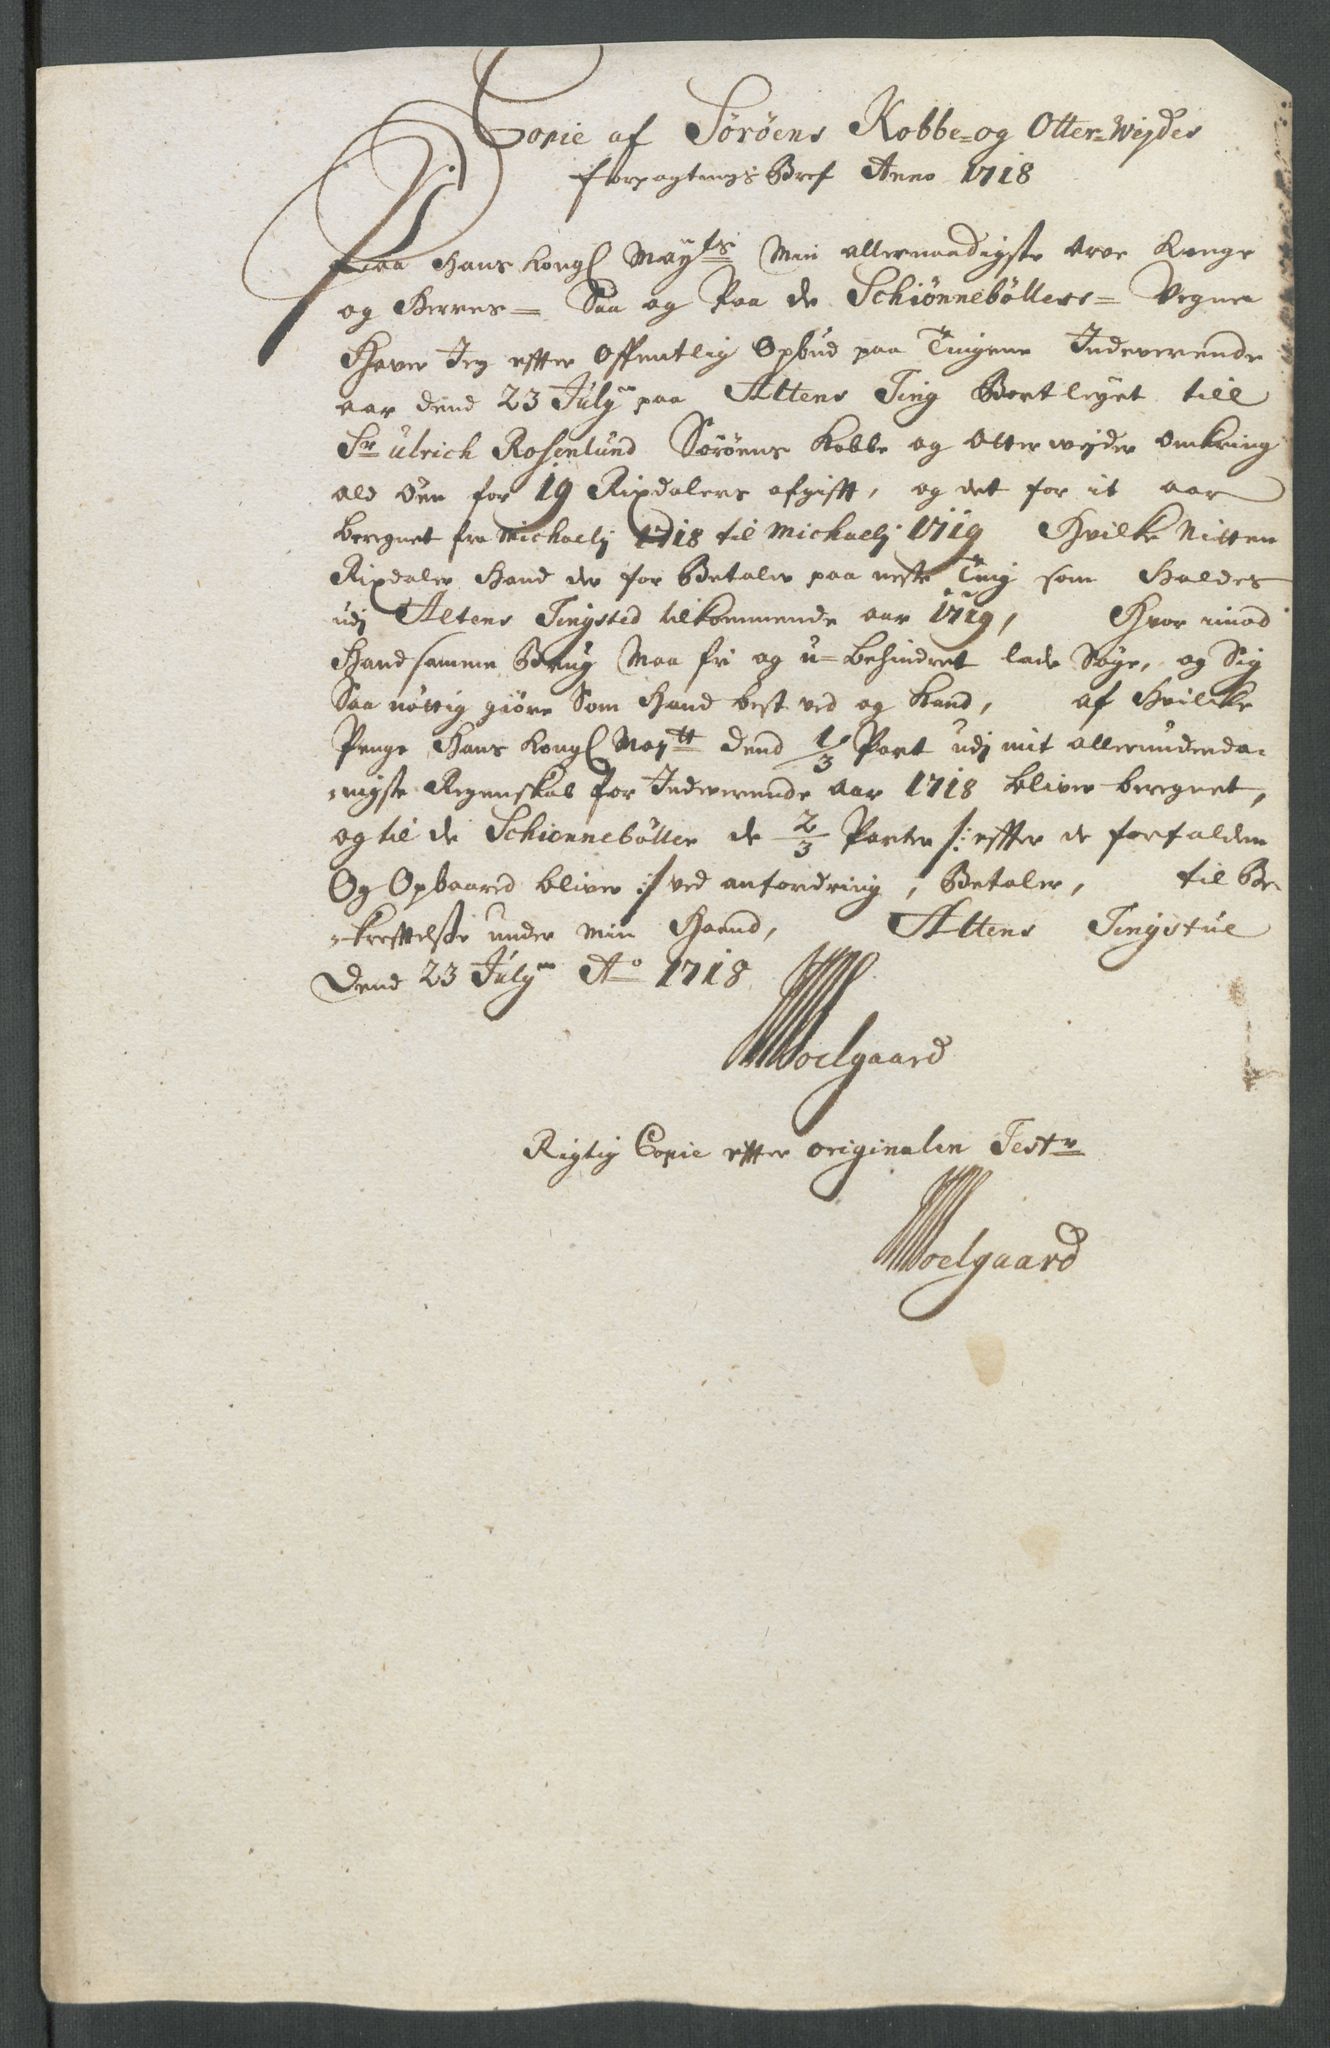 Copie af Sørøens Kobbe= og Otter=Weydes
forpagtnings Bref Anno 1718
Paa Hans Kongl Mayts Min allernaadigste Arve Konge
og Herres= Saa og Paa de Schiønnebøllers= Vegne
Haver Jeg effter Offentlig Opbud paa Tingene Indeverende
aar dend 23 July paa Altens Ting Bortleyet till
Sr Ulrich Rosenlund Sørøens Kobbe og Otter weyder omkring
ald Øen for 19 Rixdalers afgifft, og det for it aar
beregnet fra Michaelj 1718 til Michaelj 1719 Hvilke Nitten
Rixdaler Hand der for Betaler paa neste Ting som Holdes
udj Altens Tingsted tilkommende aar 1719, Hvor imod
Hand samme Brug Maa fri og u=behindret lade Søge, og Sig
Saa nøttig giøre Som Hand best ved og kand, af Hvilcke
Penge Hans Kongl Maytt dend 1/3 Part udj mit allerunderda=
=nigste Regenskab for Indeverende Aar 1718 bliver beregnet,
og til de Schiønnebøller de 2/3 Parter /: effter de forfalden
Og Opbaared bliver :/ ved anfordring, Betaler, til Be=
=krefftelsse under Min Haand, Altens Tingstue
Dend 23 July Ao 1718
Noelgaard
Rigtig Copie effter originalen Test
Noelgaard